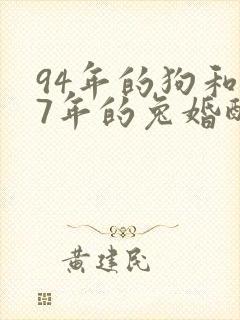 94年的狗和
7年的兔婚
黄建民